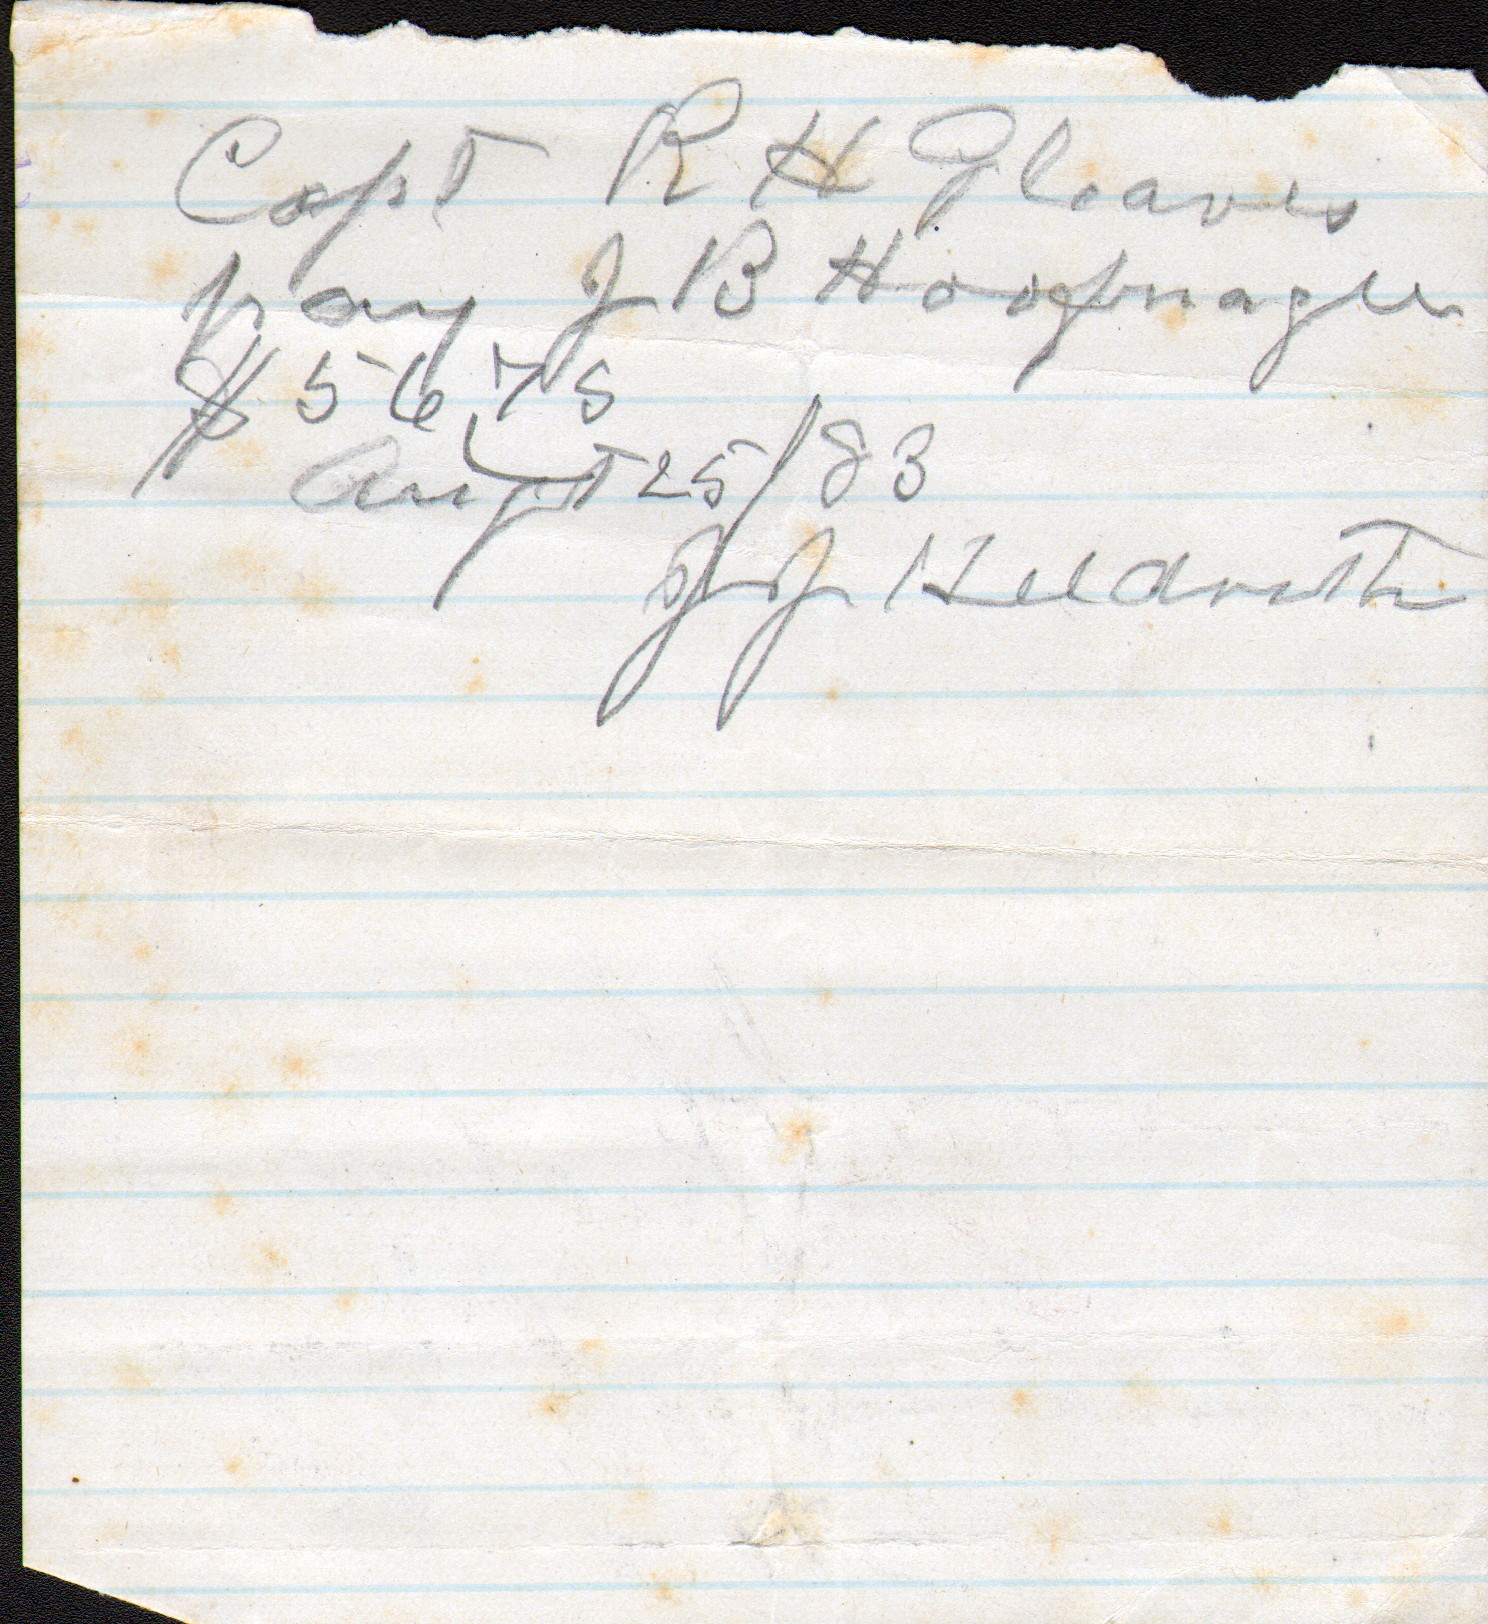 Capt R H Gleaves
pay J B Hoofnagle
$56,75
Augt 25/83
J J Hildreth